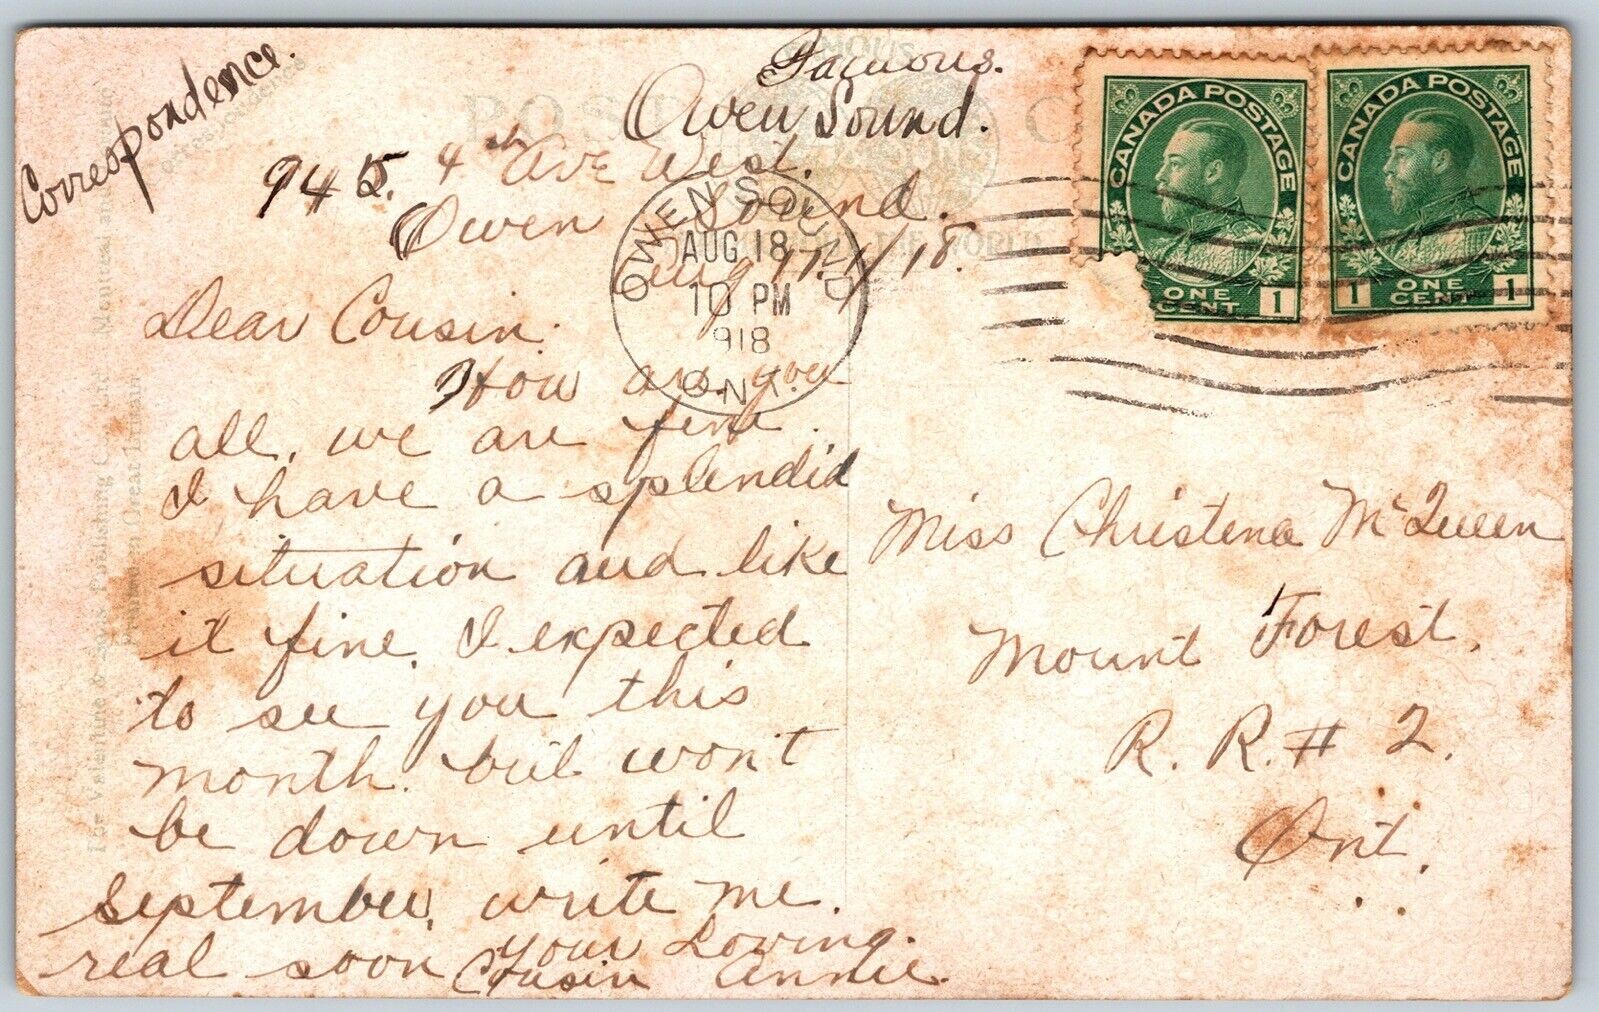 Correspondence.
Famous.
Owen Sound.
945. 4th Ave West.
Owen Sound.
Aug 17th/18.
Dear Cousin.
How are you
all, we are fine.
I have a splendid
situation and like
it fine. I expected
to see you this
month. but won't
be down until
September, write me.
real soon
Your Loving.
Cousin Annie.
OWEN SOUND
AUG 18
10 PM
918
ONT.
CANADA POSTAGE
ONE
CENT 1
CANADA POSTAGE
1 ONE 1
CENT
Miss Christena McQueen
Mount Forest.
R. R. # 2.
Ont.
FAMOUS
POST
THE WORLD
The Valentine & Sons Publishing Co., Ltd.
Printed in Great Britain